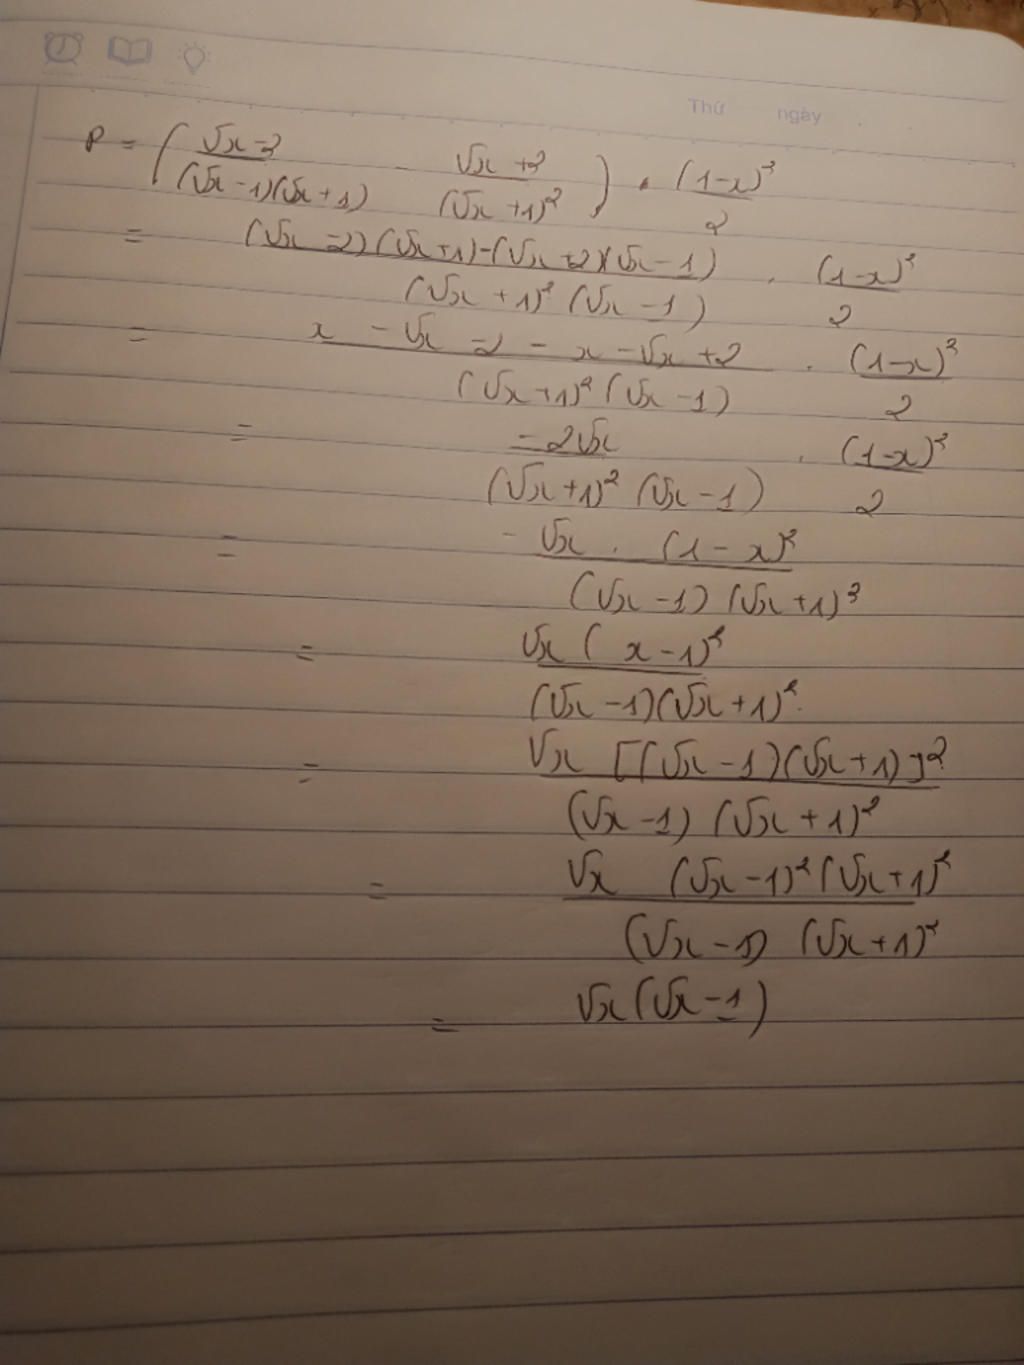 Thứ ngày
P = ( (√x - 2)/((√x - 1)(√x + 1)) - (√x + 2)/((√x + 1)²) ) . (1-x)²/2
= ((√x - 2)(√x + 1) - (√x + 2)(√x - 1))/((√x + 1)² (√x - 1)) . (1-x)²/2
= (x - √x - 2 - x - √x + 2)/((√x + 1)² (√x - 1)) . (1-x)²/2
= (-2√x)/((√x + 1)² (√x - 1)) . (1-x)²/2
= (-√x . (1 - x)²)/((√x - 1) (√x + 1)²)
= (√x (x - 1)²)/((√x - 1)(√x + 1)²)
= (√x [(√x - 1)(√x + 1)]²)/((√x - 1) (√x + 1)²)
= (√x (√x - 1)² (√x + 1)²)/((√x - 1) (√x + 1)²)
= √x (√x - 1)